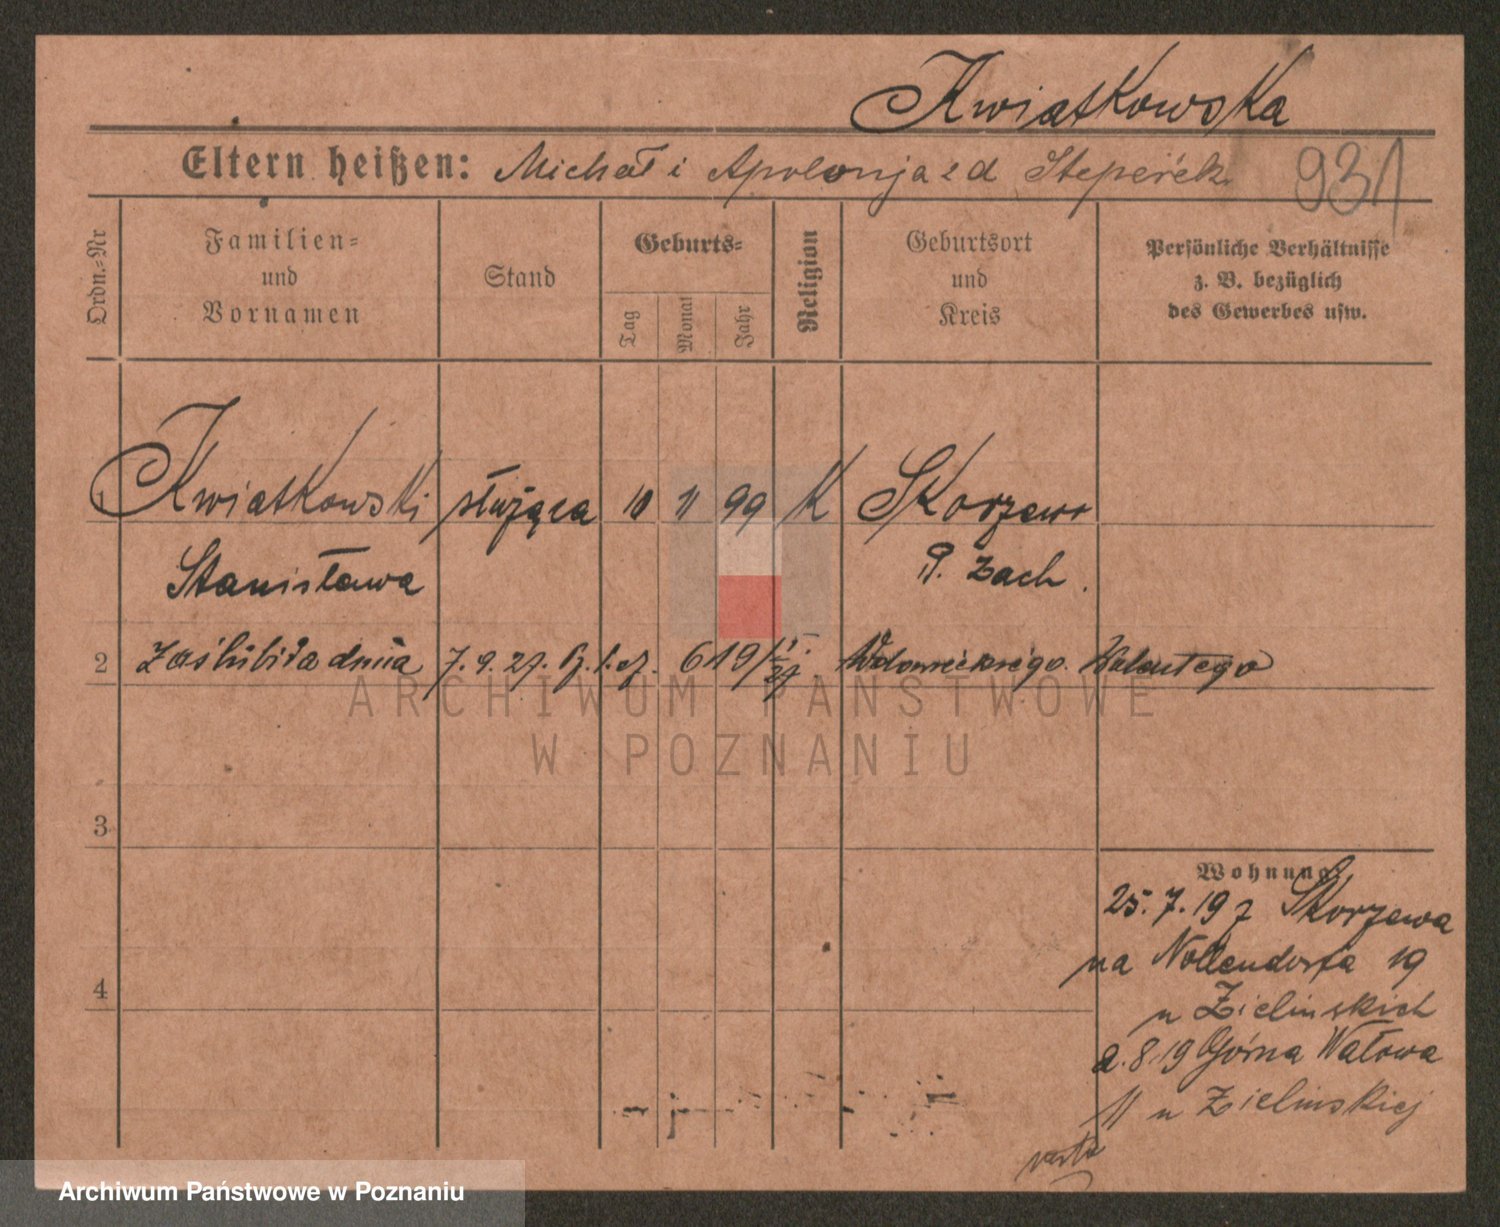 Kwiatkowska
Eltern heißen: Michał i Apolonja z d Steperek
931
Ordn.-Nr
Familien-
und
Vornamen
Stand
Geburts-
Tag
Monat
Jahr
Religion
Geburtsort
und
Kreis
Persönliche Verhältnisse
z. B. bezüglich
des Gewerbes usw.
1 Kwiatkowski służąca 10 11 99 K Skorzewo
Stanisława P. Zach.
2 zaślubiła dnia 7. 9. 27. 619/ Walentego
ARCHIWUM PAŃSTWOWE
W POZNANIU
3
Wohnung
25. 7. 19 z Skorzewa
na Nollendorfa 19
4
u Zielinskich
8.19 Górna Wałowa
11 u Zielinskiej
verte
Archiwum Państwowe w Poznaniu